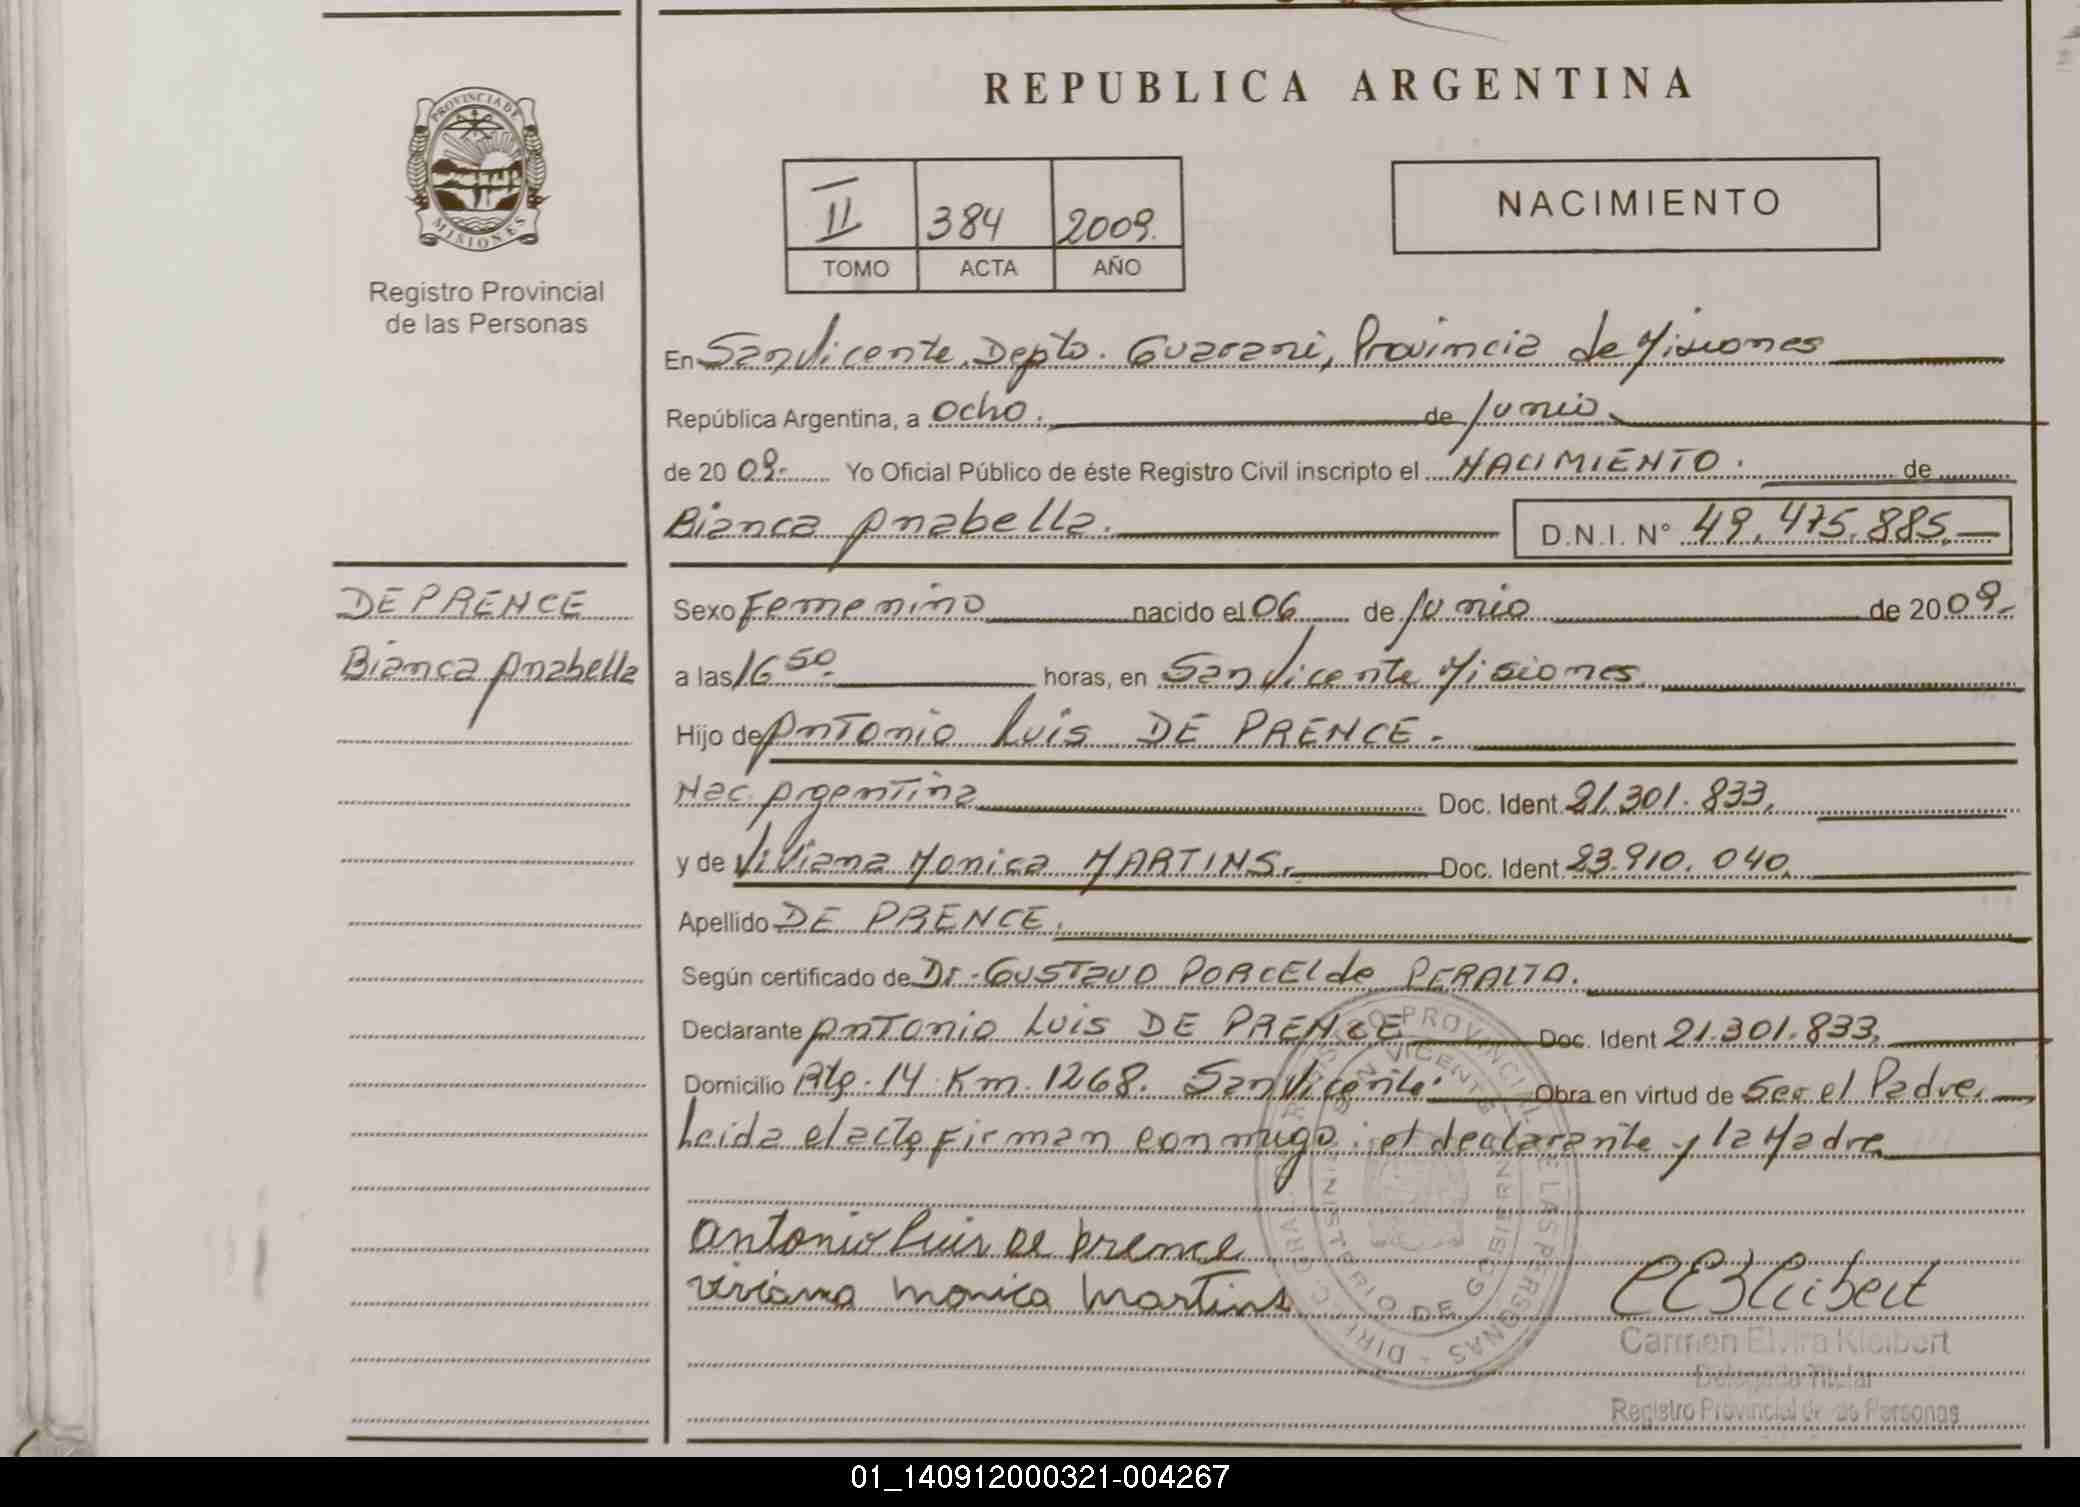 REPUBLICA ARGENTINA
PROVINCIA DE MISIONES
Registro Provincial
de las Personas
II 384 2009.
TOMO ACTA AÑO
NACIMIENTO
En San Vicente, Depto. Guarani, Provincia de Misiones
República Argentina, a ocho. de Junio
de 20 09.- Yo Oficial Público de éste Registro Civil inscripto el NACIMIENTO. de
Bianca Anabella. D.N.I. N° 49.475.885.-
DE PRENCE
Bianca Anabella
Sexo Femenino nacido el 06 de Junio de 20 09.-
a las 16 50 horas, en San Vicente Misiones
Hijo de Antonio Luis DE PRENCE.
Nac. Argentina Doc. Ident. 21.301.833.
y de Viviana Monica MARTINS. Doc. Ident. 23.910.040.
Apellido DE PRENCE.
Según certificado de Dr. GUSTAVO PORCEL de PERALTA.
Declarante Antonio Luis DE PRENCE Doc. Ident 21.301.833.
Domicilio Rta. 14 Km. 1268. San Vicente. Obra en virtud de Ser el Padre.
Leida el acta, firman conmigo: el declarante y la Madre
Antonio Luis De Prence
Viviana Monica Martins
CEKleibert
Carmen Elvira Kleibert
Delegada Titular
Registro Provincial de las Personas
REGISTRO PROVINCIAL DE LAS PERSONAS - DIRECC. GRAL.
SAN VICENTE
MINISTERIO DE GOBIERNO
01_140912000321-004267